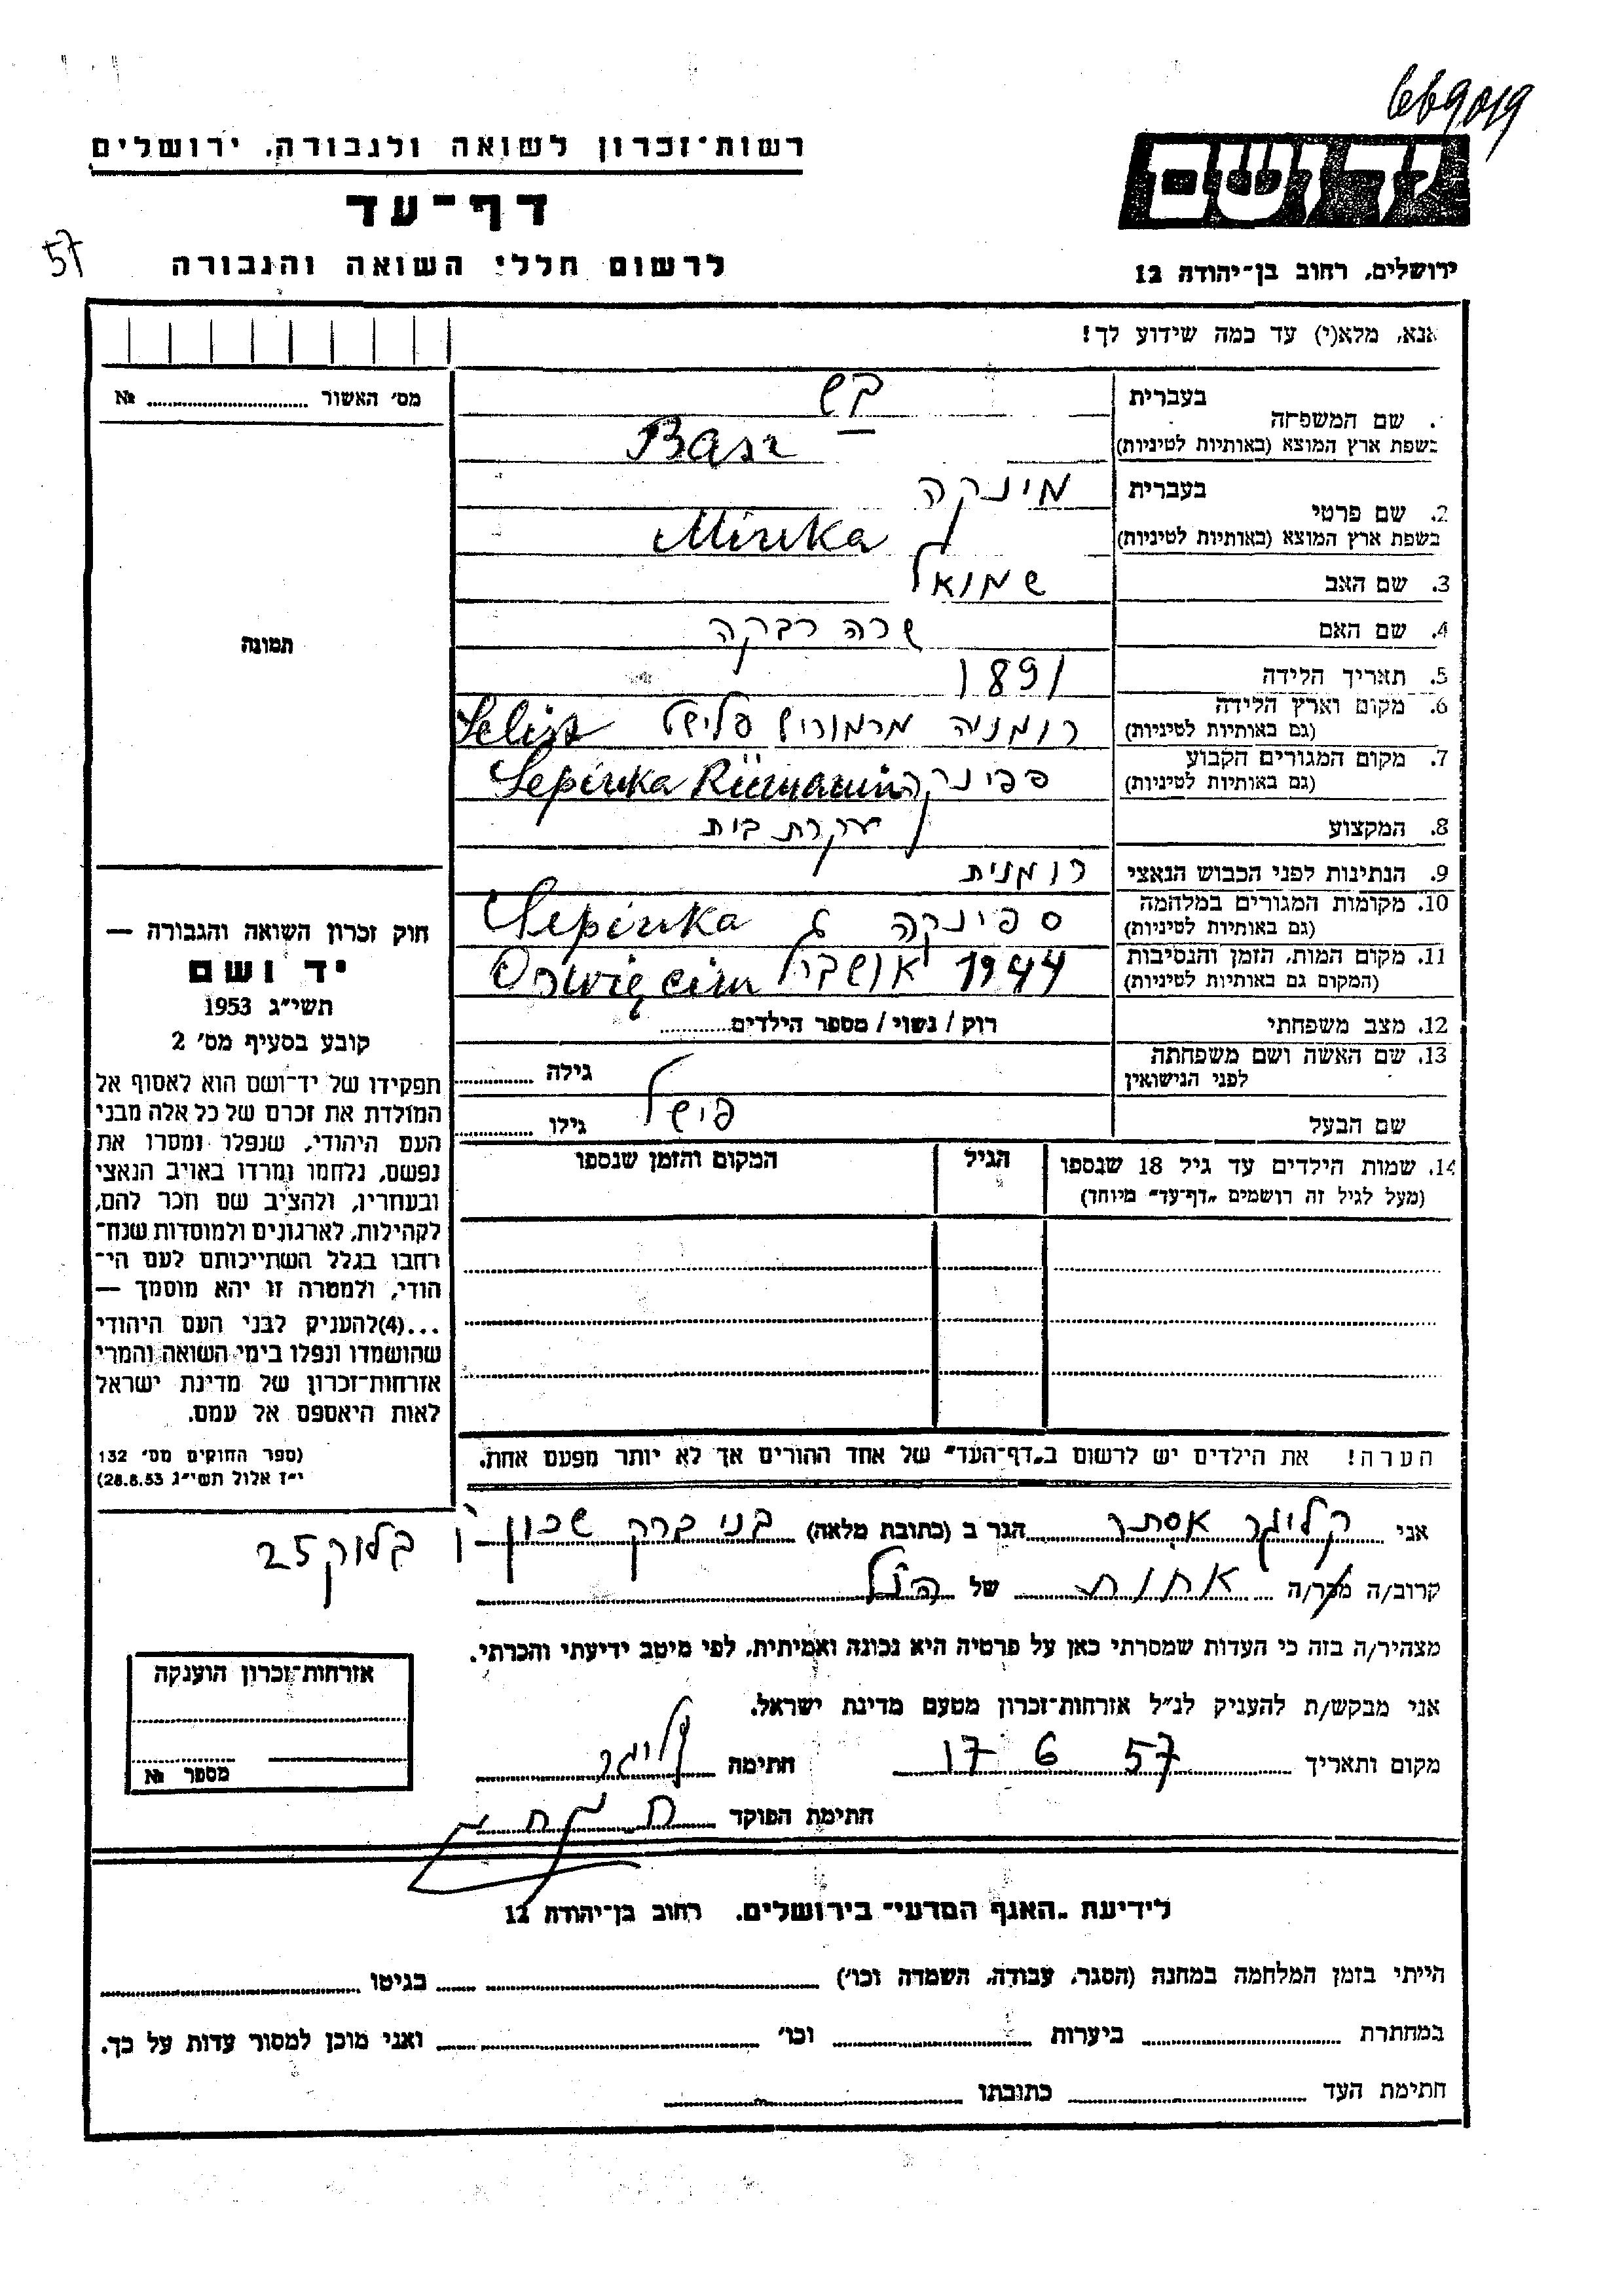 669019
יד ושם
רשות־זכרון לשואה ולגבורה, ירושלים
דף־עד
57
לרשום חללי השואה והגבורה
ירושלים, רחוב בן־יהודה 12
אנא, מלא(י) עד כמה שידוע לך!
מס׳ האשור № 
בעברית בש
שם המשפחה
בשפת ארץ המוצא (באותיות לטיניות) Basz
בעברית מינקה
2. שם פרטי
בשפת ארץ המוצא (באותיות לטיניות) Minka
3. שם האב שמואל
4. שם האם שרה רבקה
תמונה
5. תאריך הלידה 1891
6. מקום וארץ הלידה רומניה מרמורוש סלישט Selist
(גם באותיות לטיניות)
7. מקום המגורים הקבוע ספינקה Sepinka Rümanin
(גם באותיות לטיניות)
8. המקצוע עקרת בית
9. הנתינות לפני הכבוש הנאצי רומנית
10. מקומות המגורים במלחמה ספינקה Sepinka
(גם באותיות לטיניות)
11. מקום המות, הזמן והנסיבות 1944 Oswięcim
(המקום גם באותיות לטיניות)
12. מצב משפחתי רוק / נשוי / מספר הילדים
13. שם האשה ושם משפחתה גילה
לפני הנישואין
שם הבעל פישל גילו
14. שמות הילדים עד גיל 18 שנספו הגיל המקום והזמן שנספו
(מעל לגיל זה רושמים „דף־עד״ מיוחד)
חוק זכרון השואה והגבורה —
יד ושם
תשי״ג 1953
קובע בסעיף מס׳ 2
תפקידו של יד־ושם הוא לאסוף אל
המולדת את זכרם של כל אלה מבני
העם היהודי, שנפלו ומסרו את
נפשם, נלחמו ומרדו באויב הנאצי
ובעוזריו, ולהציב שם וזכר להם,
לקהילות, לארגונים ולמוסדות שנח־
רחבו בגלל השתייכותם לעם הי־
הודי, ולמטרה זו יהא מוסמך —
...(4)להעניק לבני העם היהודי
שהושמדו ונפלו בימי השואה והמרי
אזרחות־זכרון של מדינת ישראל
לאות היאספם אל עמם.
(ספר החוקים מס׳ 132
י״ז אלול תשי״ג 28.8.53)
הערה! את הילדים יש לרשום ב„דף־העד״ של אחד ההורים אך לא יותר מפעם אחת.
אני קליגר אסתר הגר ב (כתובת מלאה) בני ברק שכון ו׳ בלוק 25
קרוב/ה מכר/ה אחות של הנ״ל
מצהיר/ה בזה כי העדות שמסרתי כאן על פרטיה היא נכונה ואמיתית, לפי מיטב ידיעתי והכרתי.
אני מבקש/ת להעניק לנ״ל אזרחות־זכרון מטעם מדינת ישראל.
מקום ותאריך 17 6 57 חתימה קליגר
חתימת הפוקד
אזרחות־זכרון הוענקה
מספר №
לידיעת „האגף המדעי״ בירושלים, רחוב בן־יהודה 12
הייתי בזמן המלחמה במחנה (הסגר, עבודה, השמדה וכו׳) בגיטו
במחתרת ביערות וכו׳ ואני מוכן למסור עדות על כך.
חתימת העד כתובתו